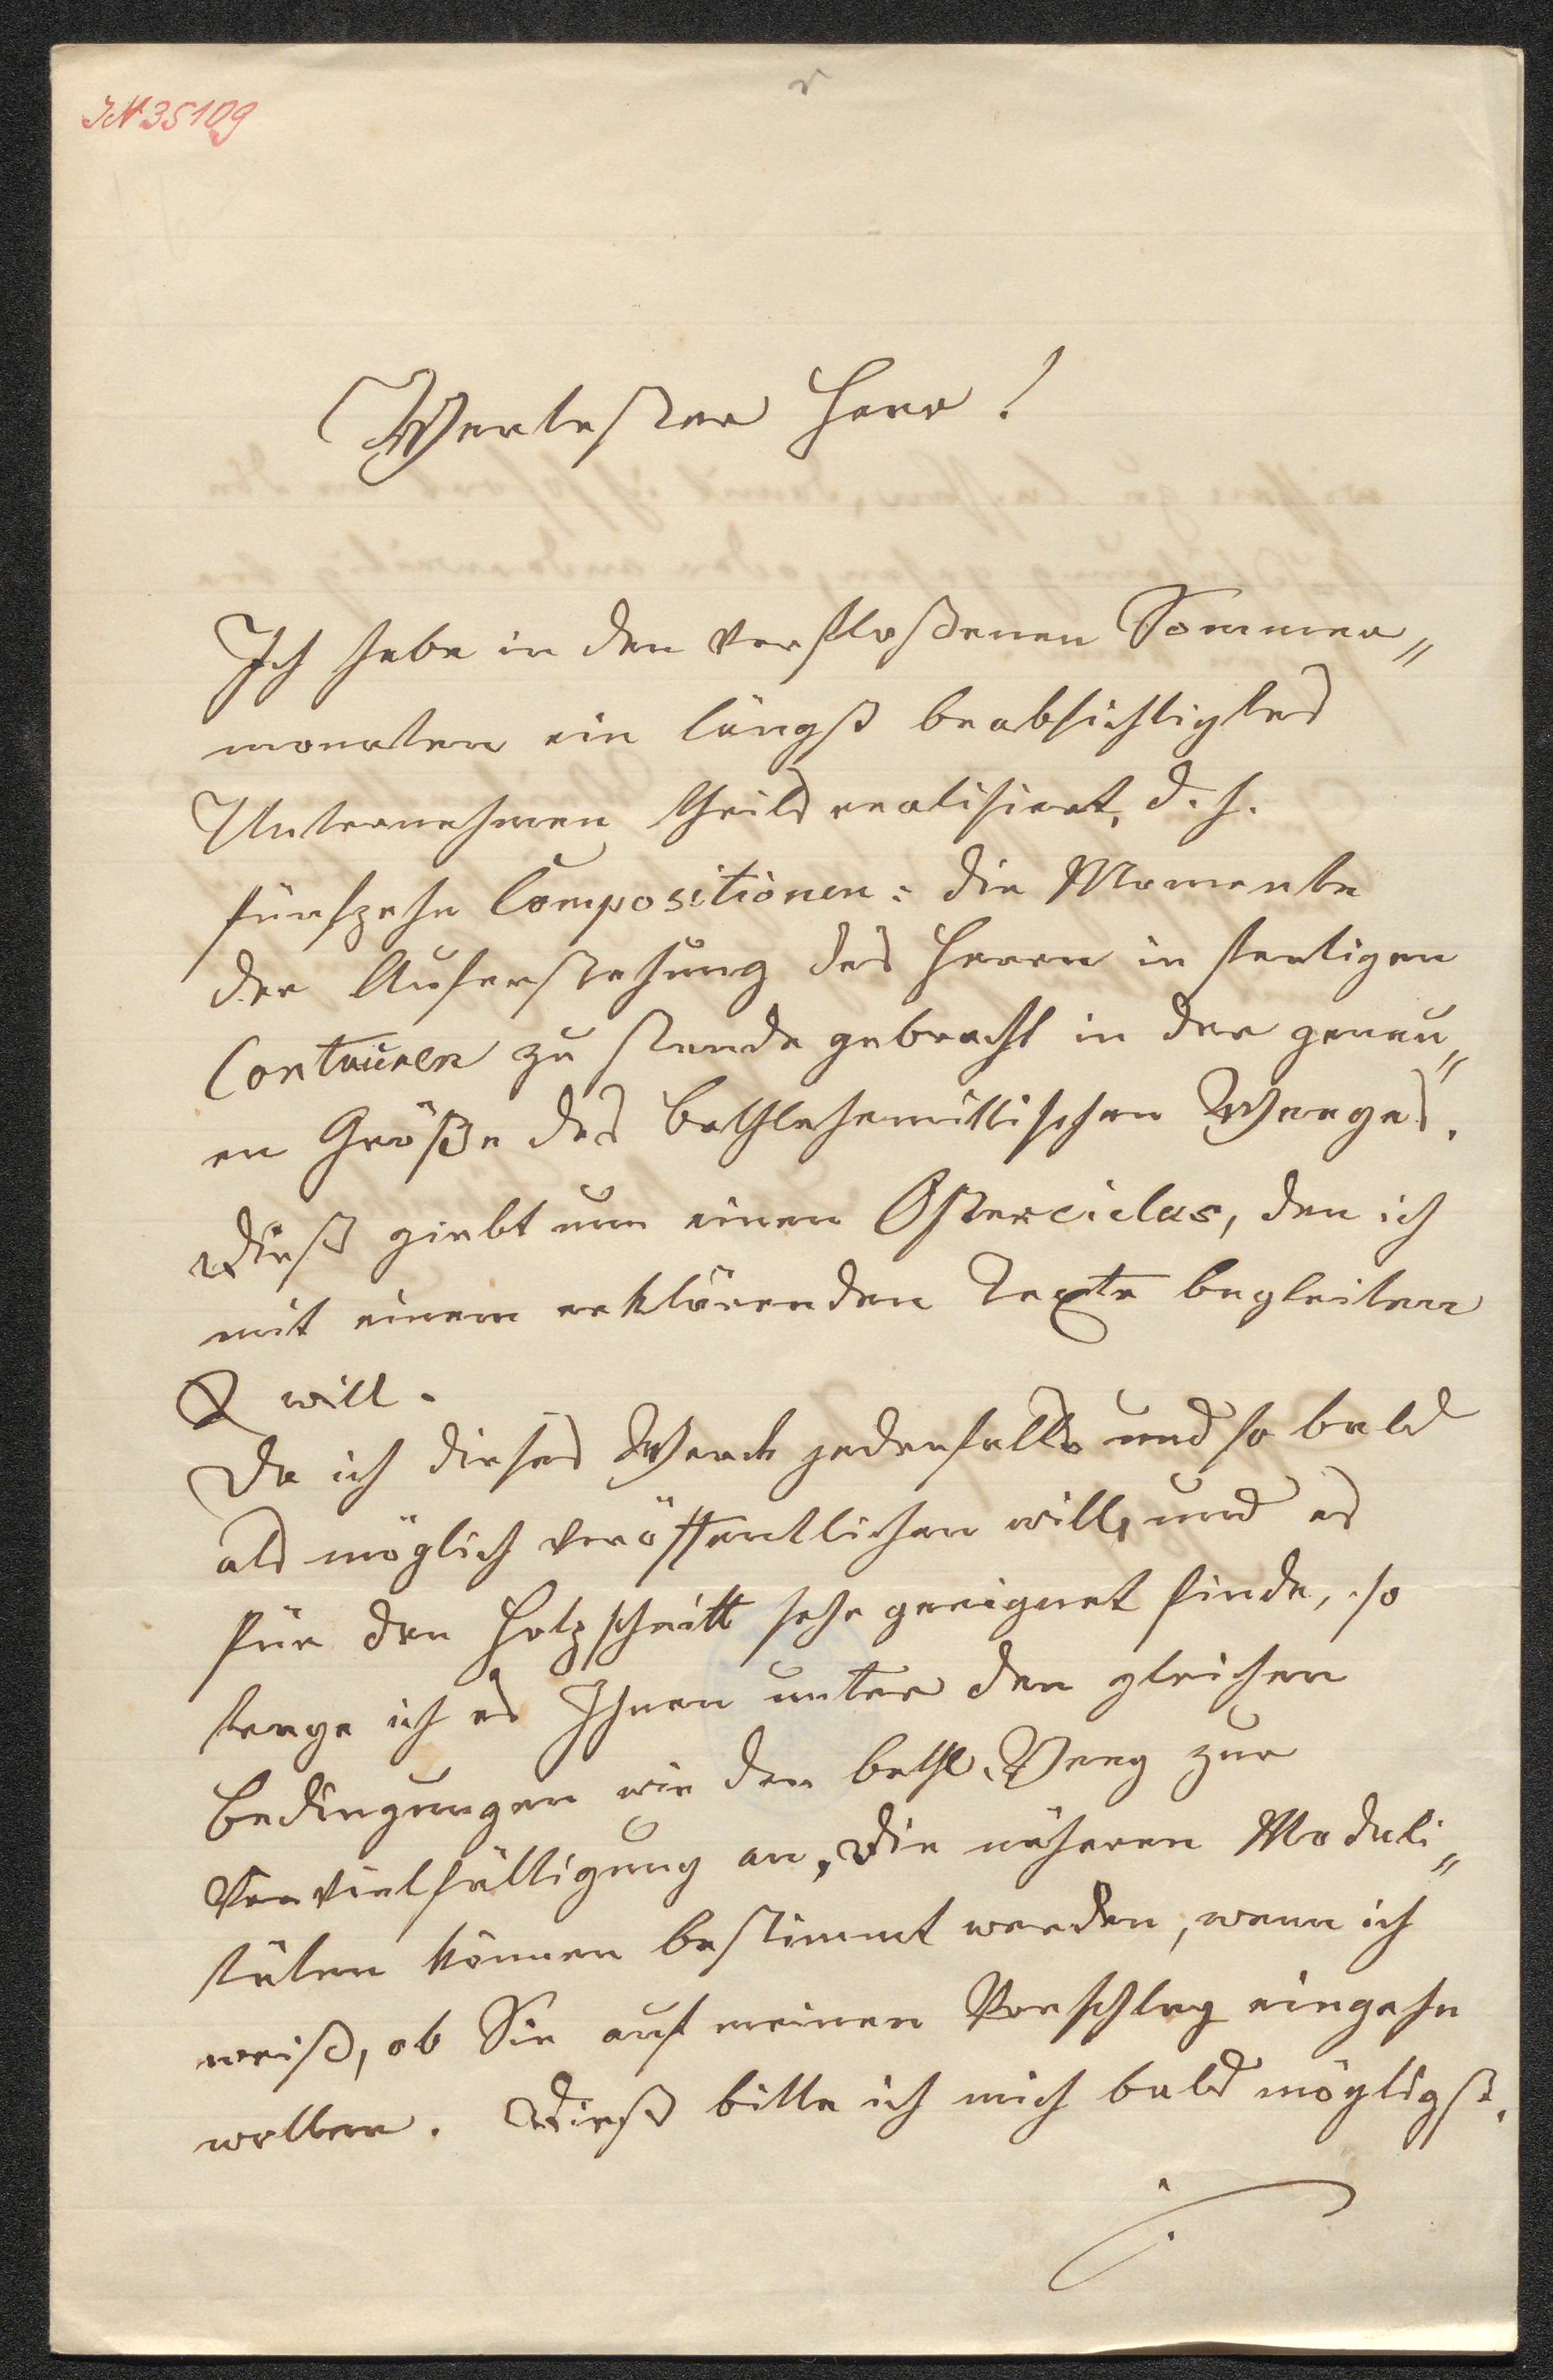 IN 35109
r
Wertester Herr!
Ich habe in den verfloßenen Sommer„
monaten ein längst beabsichtigtes
Unternehmen theils realisirt, d. h.
fünfzehn Compositionen: die Momente
der Auferstehung des Herrn in fertigen
Contouren zu stande gebracht in der genau„
en Größe des bethlehemittischen Weeges.
Dieß giebt nun einen Osterciclus, den ich
mit einem erklärenden Texte begleiten
will.
Da ich dieses Werck jedenfalls und so bald
als möglich veröffentlichen will, und es
für den Holzschnitt sehr geeignet finde, so
trage ich es Ihnen unter den gleichen
Bedingungen wie den bethl. Weeg zur
Vervielfältigung an, die näheren Modali„
täten können bestimmt werden, wenn ich
weiß, ob Sie auf meinen Vorschlag eingehn
wollen. Dieß bitte ich mich bald mögligst.